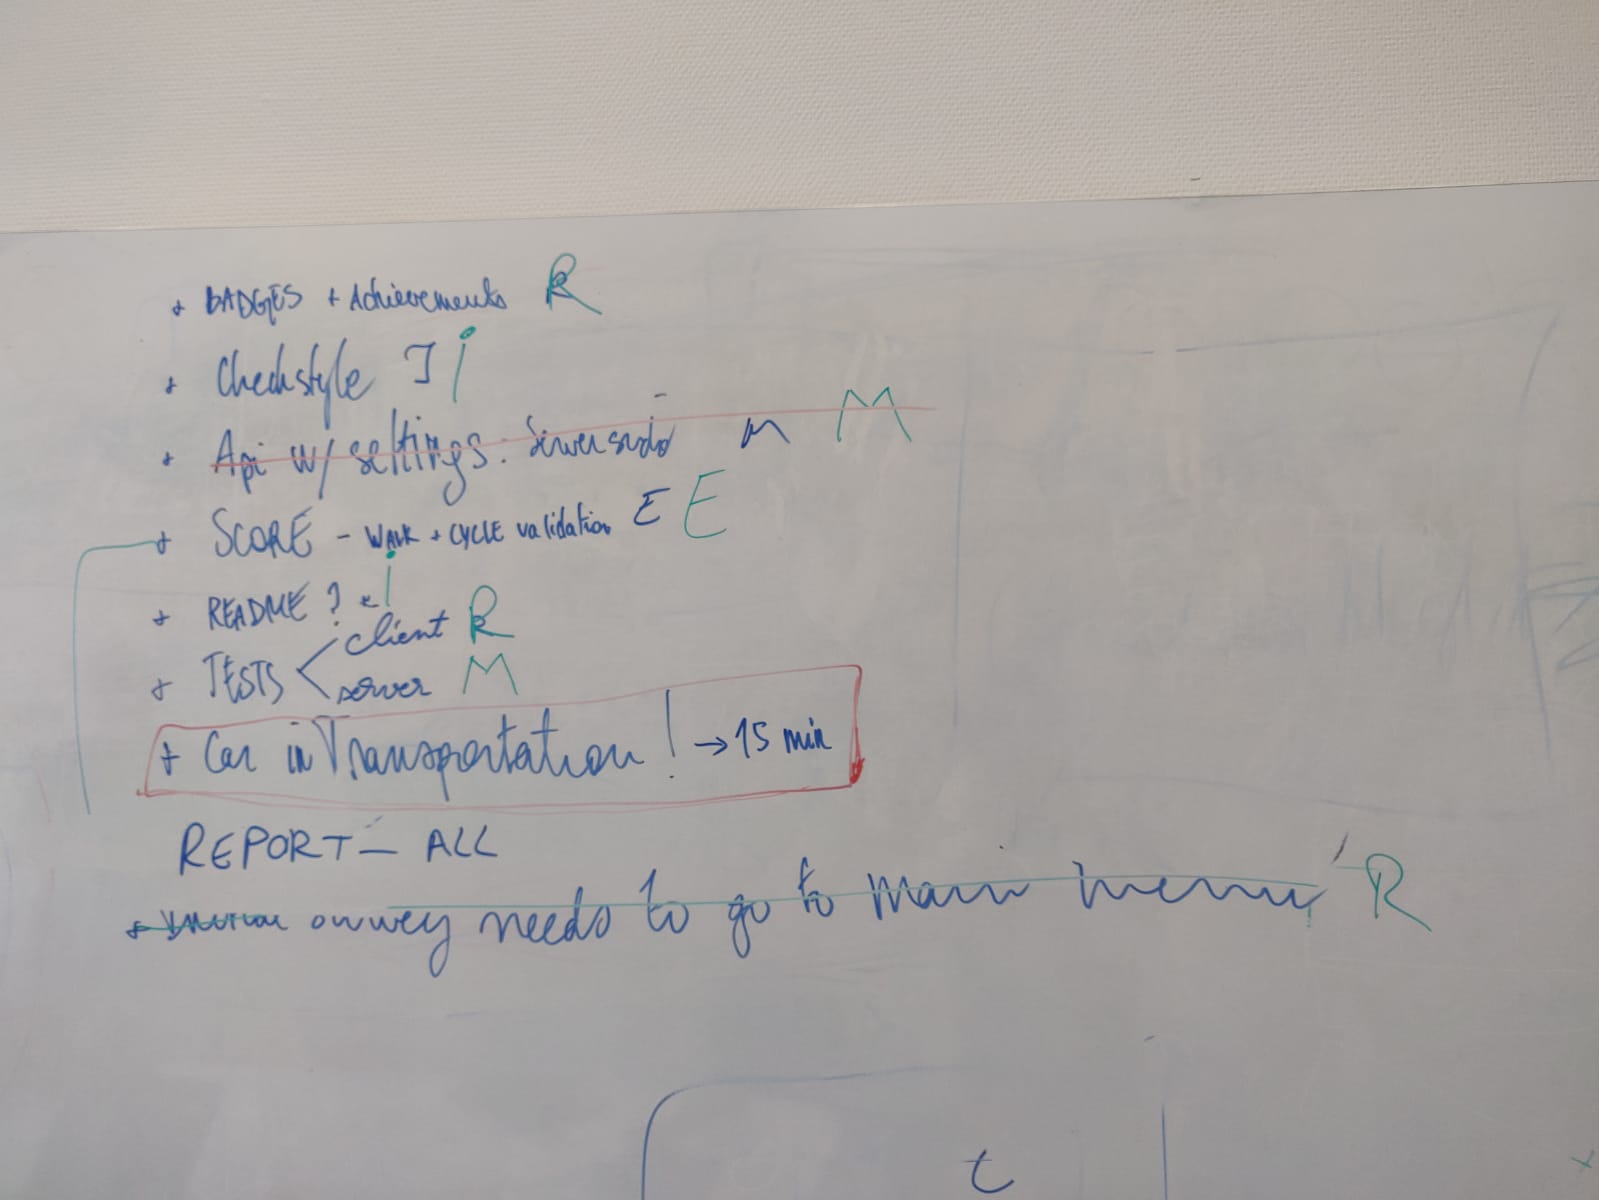 + BADGES + Achievements R
+ Checkstyle I i
+ Api w/ settings: Serverside M M
+ SCORE - WALK + CYCLE validation E E
+ README ? i
+ TESTS < client R
server M
+ Car in Transportation! → 15 min
REPORT - ALL
+ needs to go to main menu R
t